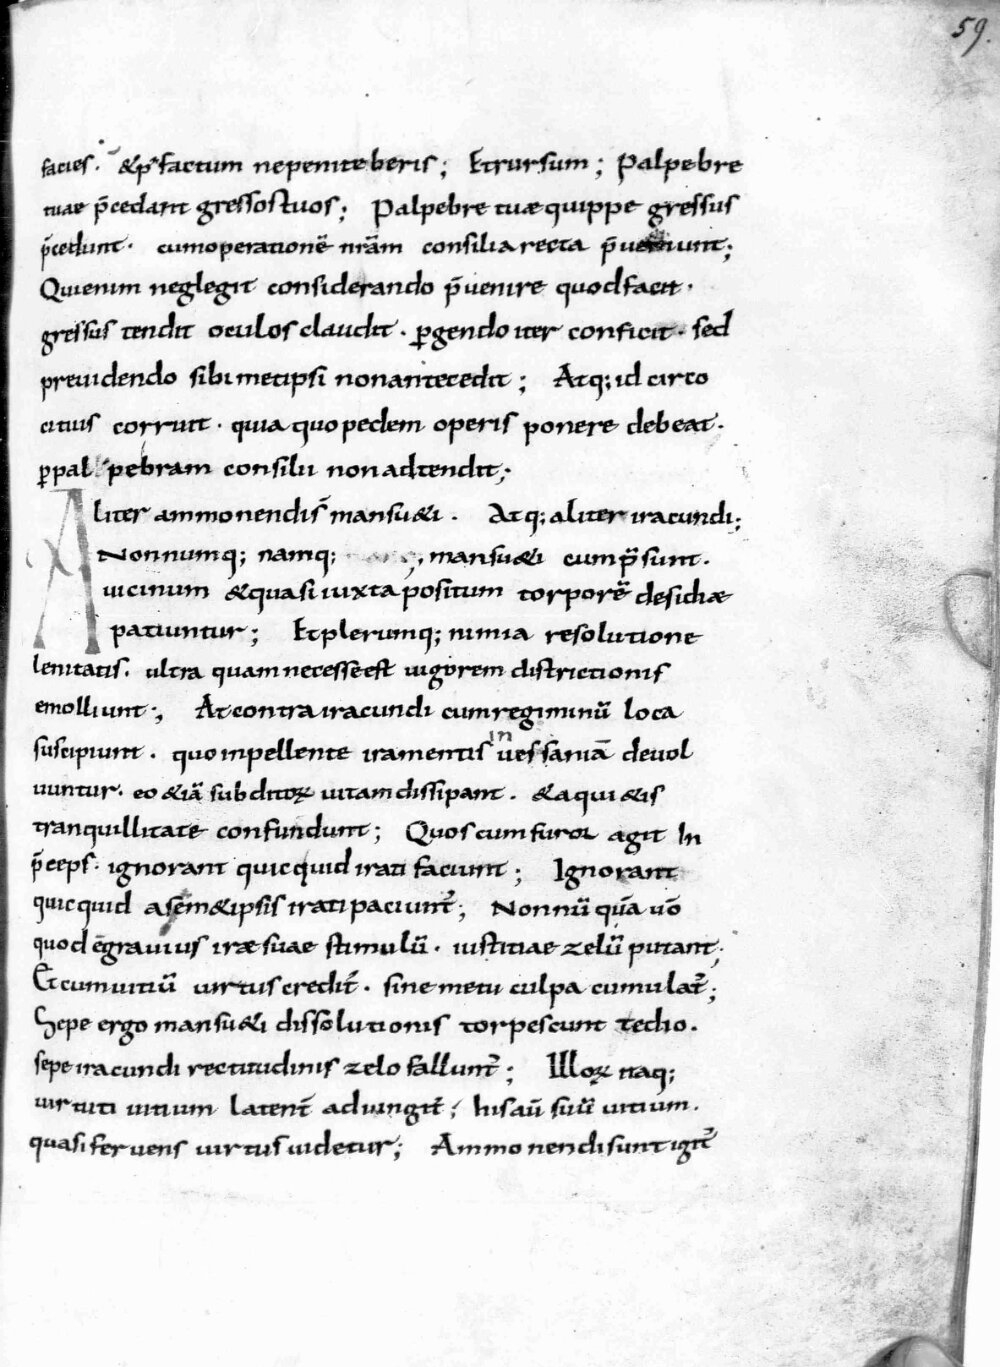 59.
facies · & p' factum nepeniteberis; Et rursum; Palpebre
tuae p̄cedant gressos tuos; Palpebre tuæ quippe gressus
p̄cedunt · cum operationē nr̄am consilia recta p̄ueniunt;
Qui enim neglegit considerando p̄uenire quod facit ·
gressus tendit oculos claudit · ꝑgendo iter conficit · sed
preuidendo sibimetipsi non antecedit; Atq; idcirco
citius corruit · quia quo pedem operis ponere debeat ·
ꝑ palpebram consilii non adtendit;
Aliter ammonendi s̄ mansu&i · Atq; aliter iracundi;
Nonnumq; namq; mansu&i cum p̄sunt ·
uicinum & quasi iuxta positum torporē desidiæ
patiuntur; Et plerumq; nimia resolutione
lenitatis · ultra quam necesse est uigorem districtionis
emolliunt; At contra iracundi cum regiminū loca
suscipiunt · quo inpellente ira mentis in uessaniā deuol
uuntur · eo &iā subditoꝝ uitam dissipant · & a qui&is
tranquillitate confundunt; Quos cum furor agit In
p̄ceps · ignorant quicquid irati faciunt; Ignorant
quicquid a sem&ipsis irati paciunt᷑; Nonnūquā uō
quod ē grauius iræ suae stimulū · iustitiae zelū putant;
Et cum uitiū uirtus credit᷑ · sine metu culpa cumulat᷑;
Sepe ergo mansu&i dissolutionis torpescunt tedio ·
sepe iracundi rectitudinis zelo fallunt᷑; Illoꝝ itaq;
uirtuti uitium latent᷑ adiungit᷑; his aū suū uitium ·
quasi feruens uirtus uidetur; Ammonendi sunt igit᷑